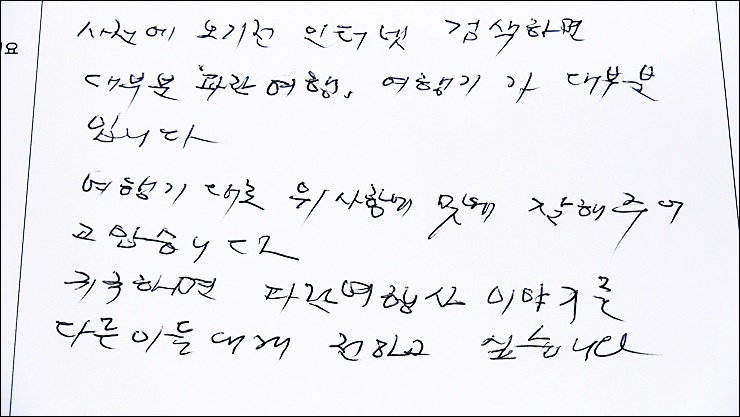 요
사전에 오기전 인터넷 검색하면
대부분 파란여행, 여행기 가 대부분
입니다
여행기 대로 위 사항에 맞에 잘해주어
고맙습니다
귀국하면 파란여행사 이야기를
다른이들에게 전하고 싶습니다